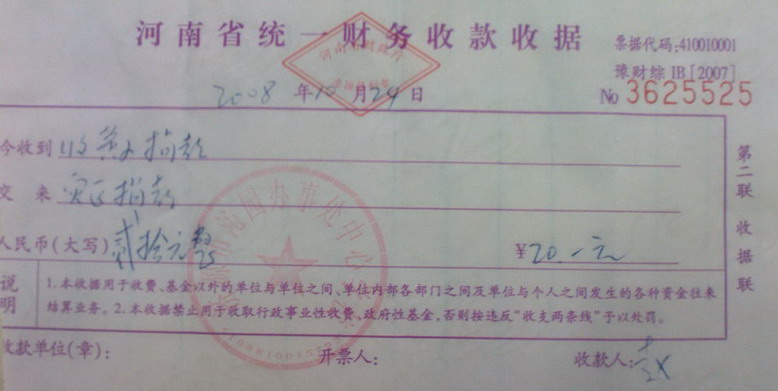 河南省统一财务收款收据
票据代码:410010001
豫财综 IB [2007]
2008 年 10 月 24 日
No 3625525
今收到 捐款
交 来 灾区捐款
人民币(大写) 贰拾元整 ¥20.-元
第二联 收据联
说明 1.本收据用于收费、基金以外的单位与单位之间、单位内部各部门之间及单位与个人之间发生的各种资金往来
结算业务。2.本收据禁止用于收取行政事业性收费、政府性基金,否则按违反"收支两条线"予以处罚。
收款单位(章): 开票人: 收款人: